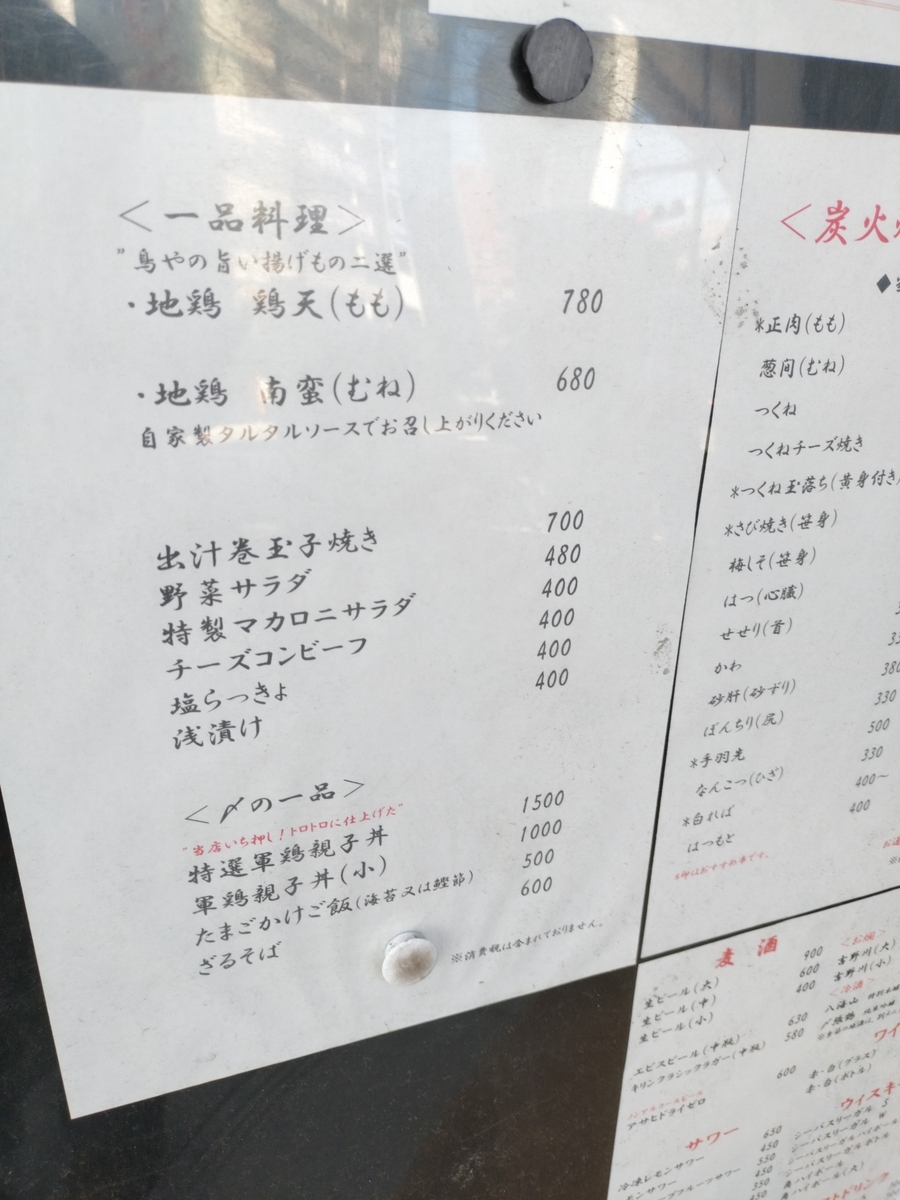 ＜一品料理＞
"鳥やの旨い揚げもの二選"
・地鶏 鶏天(もも) 780
・地鶏 南蛮(むね) 680
自家製タルタルソースでお召し上がりください
出汁巻玉子焼き 700
野菜サラダ 480
特製マカロニサラダ 400
チーズコンビーフ 400
塩らっきょ 400
浅漬け 400
＜〆の一品＞
"当店いち押し！トロトロに仕上げた"
特選軍鶏親子丼 1500
軍鶏親子丼(小) 1000
たまごかけご飯(海苔又は鰹節) 500
ざるそば 600
※消費税は含まれておりません。
＜炭火
◆
*正肉(もも)
葱間(むね)
つくね
つくねチーズ焼き
*つくね玉落ち(黄身付き)
*さび焼き(笹身)
梅しそ(笹身)
はつ(心臓)
せせり(首)
かわ
砂肝(砂ずり) 380
ぼんちり(尻) 330
*手羽先 500
なんこつ(ひざ) 330
*白ればー 400〜
はつもと 400
麦酒
生ビール(大) 900
生ビール(中) 600
生ビール(小) 400
エビスビール(中瓶) 630
キリンクラシックラガー(中瓶) 580
ノンアルコールビール
アサヒドライゼロ 600
サワー
冷凍レモンサワー 650
＜お燗＞
吉野川(大)
吉野川(小)
＜冷酒＞
八海山
〆張鶴
ワイ
赤・白(グラス)
赤・白(ボトル)
ウィスキー
シーバスリーガル S
シーバスリーガル W
シーバスリーガルハイボール
シーバスリーガルボトル
角ハイボール
角ハイボール(大)